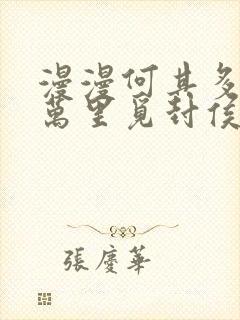 漫漫何其多
萬里覓封侯
張慶華